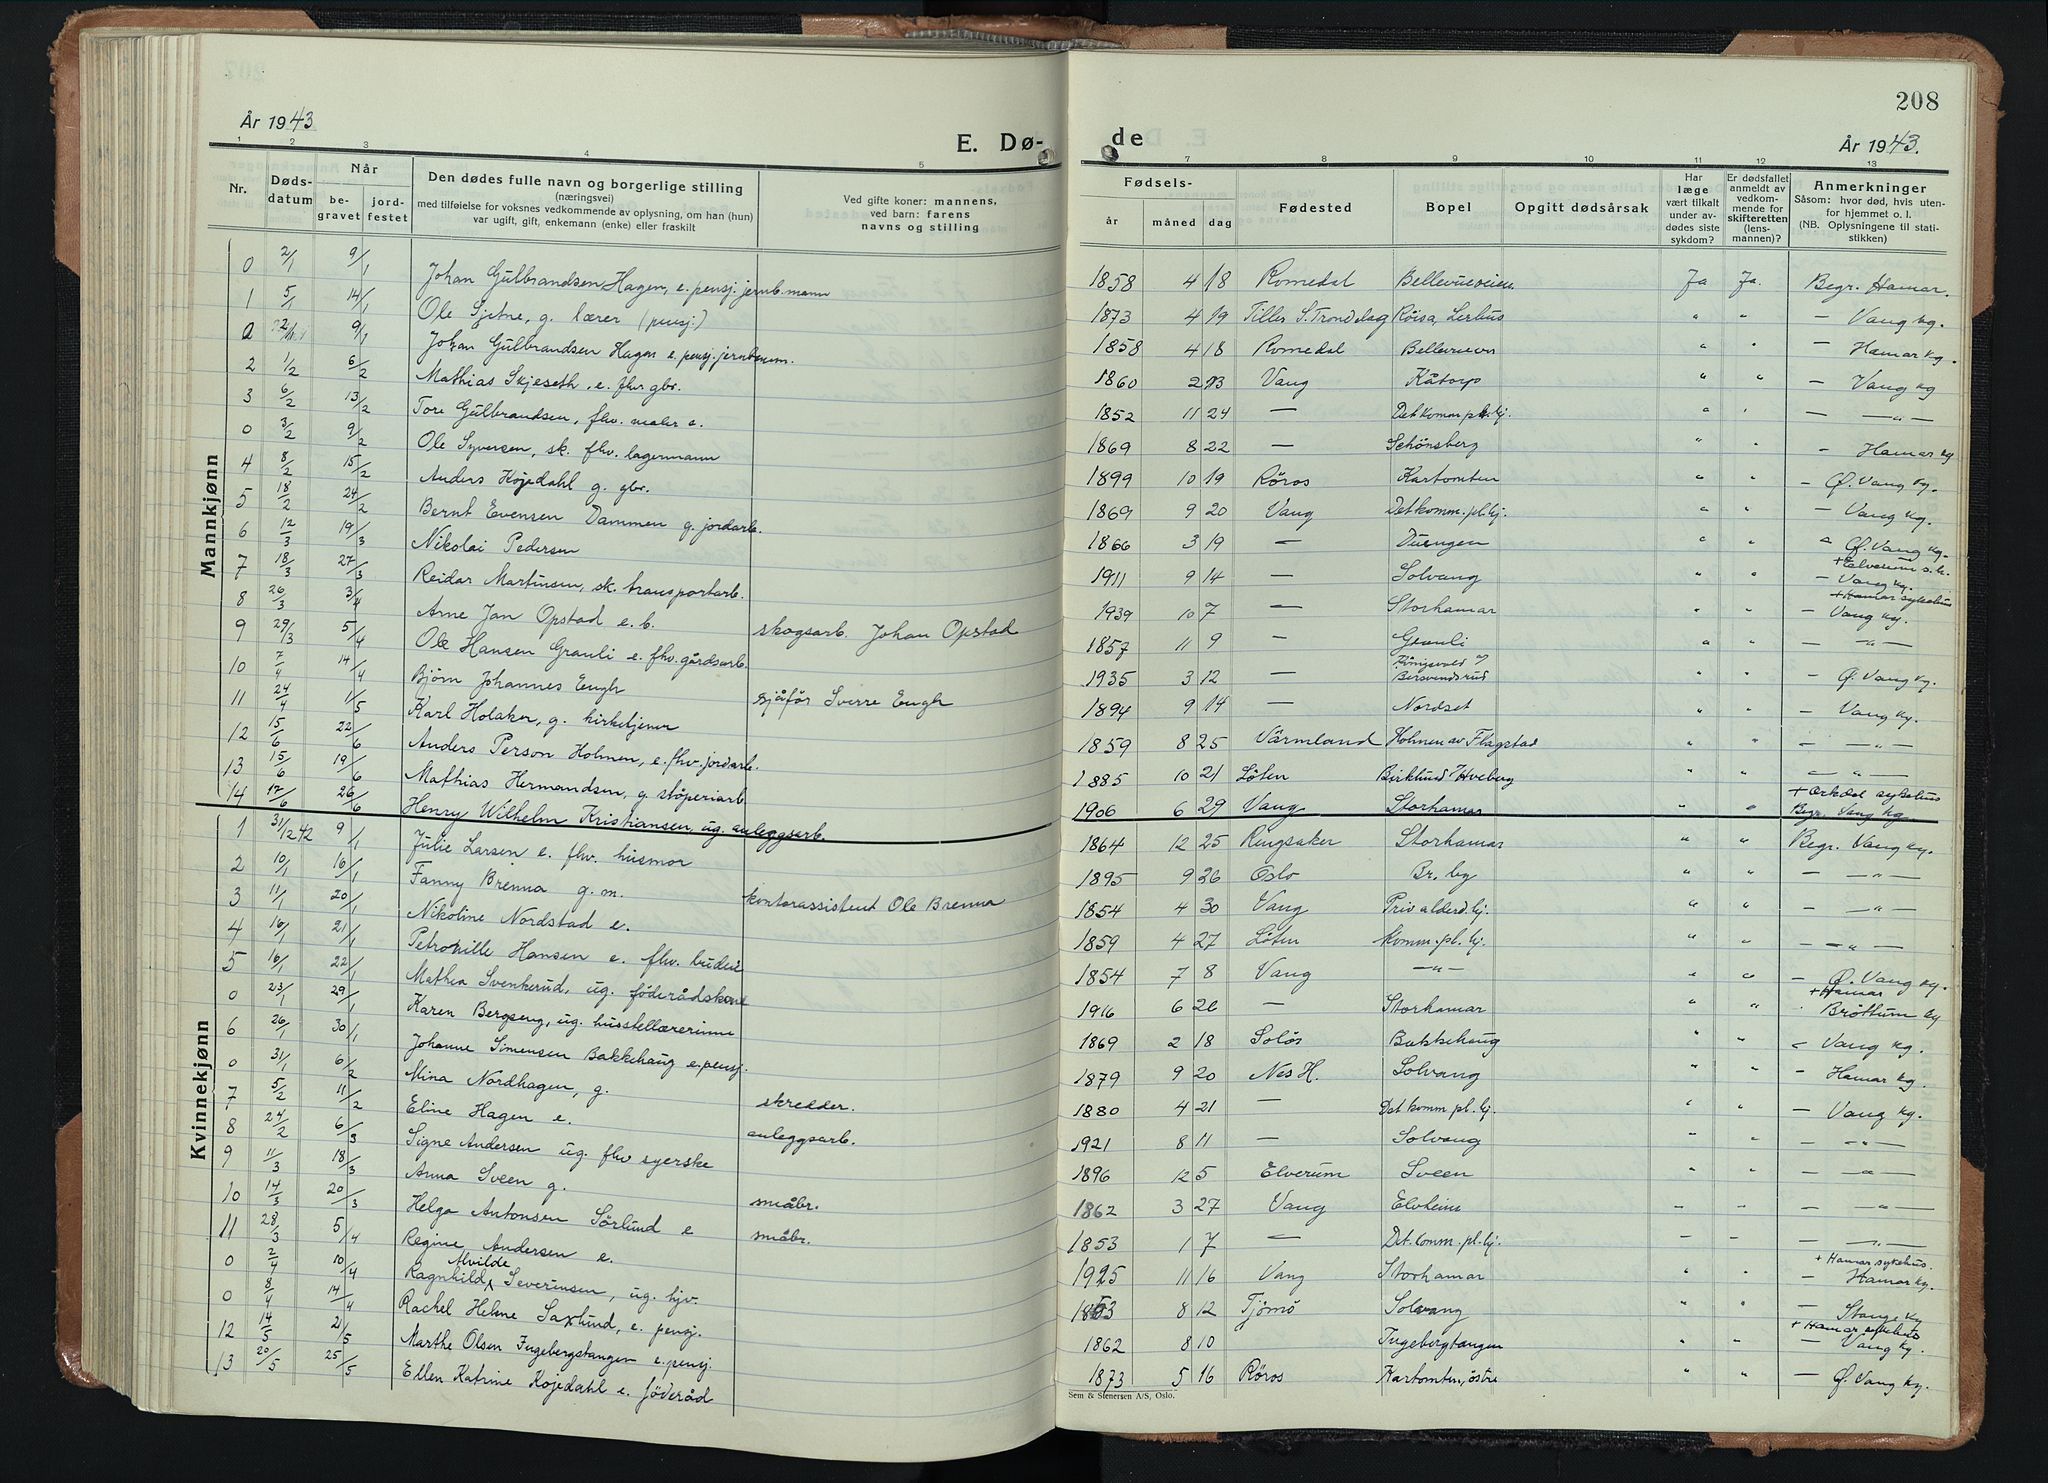 208
År 1943
E. Dø-
de
År 1943.
1 2 3 4 5 7 8 9 10 11 12 13
Nr.
Døds-
datum
Når
be-
gravet
jord-
festet
Den dødes fulle navn og borgerlige stilling
(næringsvei)
med tilføielse for voksnes vedkommende av oplysning, om han (hun)
var ugift, gift, enkemann (enke) eller fraskilt
Ved gifte koner: mannens,
ved barn: farens
navns og stilling
Fødsels-
år måned dag
Fødested
Bopel
Opgitt dødsårsak
Har
læge
vært tilkalt
under av-
dødes siste
sykdom?
Er dødsfallet
anmeldt av
vedkom-
mende for
skifteretten
(lens-
mannen)?
Anmerkninger
Såsom: hvor død, hvis uten-
for hjemmet o. l.
(NB. Oplysningene til stati-
stikken)
Mannkjønn
0 2/1 9/1 Johan Gulbrandsen Hagen, e. pensj. jernb.mann 1858 4 18 Romedal Bellevueveien Ja Ja. Begr. Hamar.
1 5/1 14/1 Ole Sjetne, g. lærer (pensj.) 1873 4 19 Tiller S. Trondelag Röisa, Lerhus " " — Vang kg.
0 9/1 Johan Gulbrandsen Hagen e. pensj. jernbmm. 1858 4 18 Romedal " " — Hamar kg.
2 1/2 6/2 Mathias Skjeseth, e. fhv gbr. 1860 2 Vang Kåtorp " " — Vang kg
3 6/2 13/2 Tore Gulbrandsen, fhv. maler e. 1852 11 24 — Det komm. pl. hj. " " — — " —
0 3/2 9/2 Ole Syversen, sk. fhv. lagermann 1869 8 22 — Schönsberg " " — Hamar kg
4 8/2 15/2 Anders Kojedahl g. gbr. 1899 10 19 Röros Kartomten " " — Ø. Vang kg.
5 18/2 24/2 Bernt Evensen Dammen g. jordarb. 1869 9 20 Vang Det komm. pl. hj. " " — Vang kg.
6 12/3 19/3 Nikolai Pedersen 1866 3 19 — Duengen " " " Ø. Vang kg.
7 18/3 27/3 Reidar Martinsen, sk. transportarb. 1911 9 14 — Solvang " " + Elverum s.h. — Vang kg.
8 26/3 3/4 Arne Jan Opstad e. b. skogsarb. Johan Opstad 1939 10 7 — Storhamar " " + Hamar sykehus — Vang kg.
9 29/3 5/4 Ole Hansen Grauli e. fhv. gårdsarb. 1857 11 9 — Grauli " " — — " —
10 7/4 14/4 Bjørn Johannes Engh sjåför Sverre Engh 1935 3 12 — Bersvendsrud " " — Ø. Vang kg.
11 24/4 1/5 Karl Holaker, g. kirketjener 1894 9 14 — Nordset " " — Vang kg.
12 15/6 22/6 Anders Person Holmen, e. fhv. jordarb. 1859 8 25 Värmland Holmen av Flagstad " " — — " —
13 15/6 19/6 Mathias Hermandsen, g. støperiarb 1885 10 21 Löten Birklund / Hveberg " " — — " —
14 17/6 26/6 Henry Wilhelm Kristiansen, ug. anleggsarb. 1906 6 29 Vang Storhamar " " + Orkdal sykehus Begr. Vang kg
Kvinnekjønn
1 31/12 42 9/1 Julie Larsen e. fhv. husmor 1864 12 25 Ringsaker Storhamar " " Begr. Vang kg.
2 10/1 16/1 Fanny Brenna g. m. kontorassistent Ole Brenna 1895 9 26 Oslo Br. by " " — — " —
3 11/1 20/1 Nikoline Nordstad e. 1854 4 30 Vang Priv alderd. hj. " " — — " —
4 16/1 21/1 Petronille Hansen e. fhv. budeie 1859 4 27 Löten Komm. pl. hj. " " — — " —
5 16/1 22/1 Mathea Svenkerud, ug. föderådskone 1854 7 8 Vang — " — " " — Ø. Vang kg.
0 23/1 29/1 Karen Bergseng, ug. husstellærerinne 1916 6 26 — Storhamar " " + Hamar Bröttum kg
6 26/1 30/1 Johanne Simensen Bakkehaug e. pensj. 1869 2 18 Solör Bakkehaug " " — Vang kg.
0 31/1 6/2 Mina Nordhagen, g. skredder. 1879 9 20 Nes H. Solvang " " — Hamar kg.
7 5/2 11/2 Eline Hagen e. anleggsarb. 1880 4 21 — Det komm pl. hj. " " — Vang kg.
8 24/2 6/3 Signe Andersen ug. fhv syerske 1921 8 11 — Solvang " " — — " —
9 11/3 18/3 Anna Sveen g. småbr. 1896 12 5 Elverum Sveen " " — — " —
10 14/3 20/3 Helga Antonsen Sörlund e småbr. 1862 3 27 Vang Elvheim — — — " —
11 28/3 5/4 Regine Andersen e. 1853 1 7 — Det. komm. pl. hj. — — — " —
0 2/4 10/4 Ragnhild Alvilde Severinsen, ug. hjv. 1925 11 16 Vang Storhamar " " + Hamar sykehus. — Hamar kg.
0 8/4 14/4 Rachel Helene Saxlund, e. pensj. 1853 8 12 Tjömö Solvang " " — Stange kg
12 14/5 21/5 Marthe Olsen Ingebergstangen e. pensj. 1862 8 10 Ingebergtangen " " + Hamar sykehus — Vang kg.
13 20/5 25/5 Ellen Katrine Kojedahl e. föderåd 1873 5 16 Röros Kartomten, östre " " — Ø. Vang kg.
Sem & Stenersen A/S, Oslo.